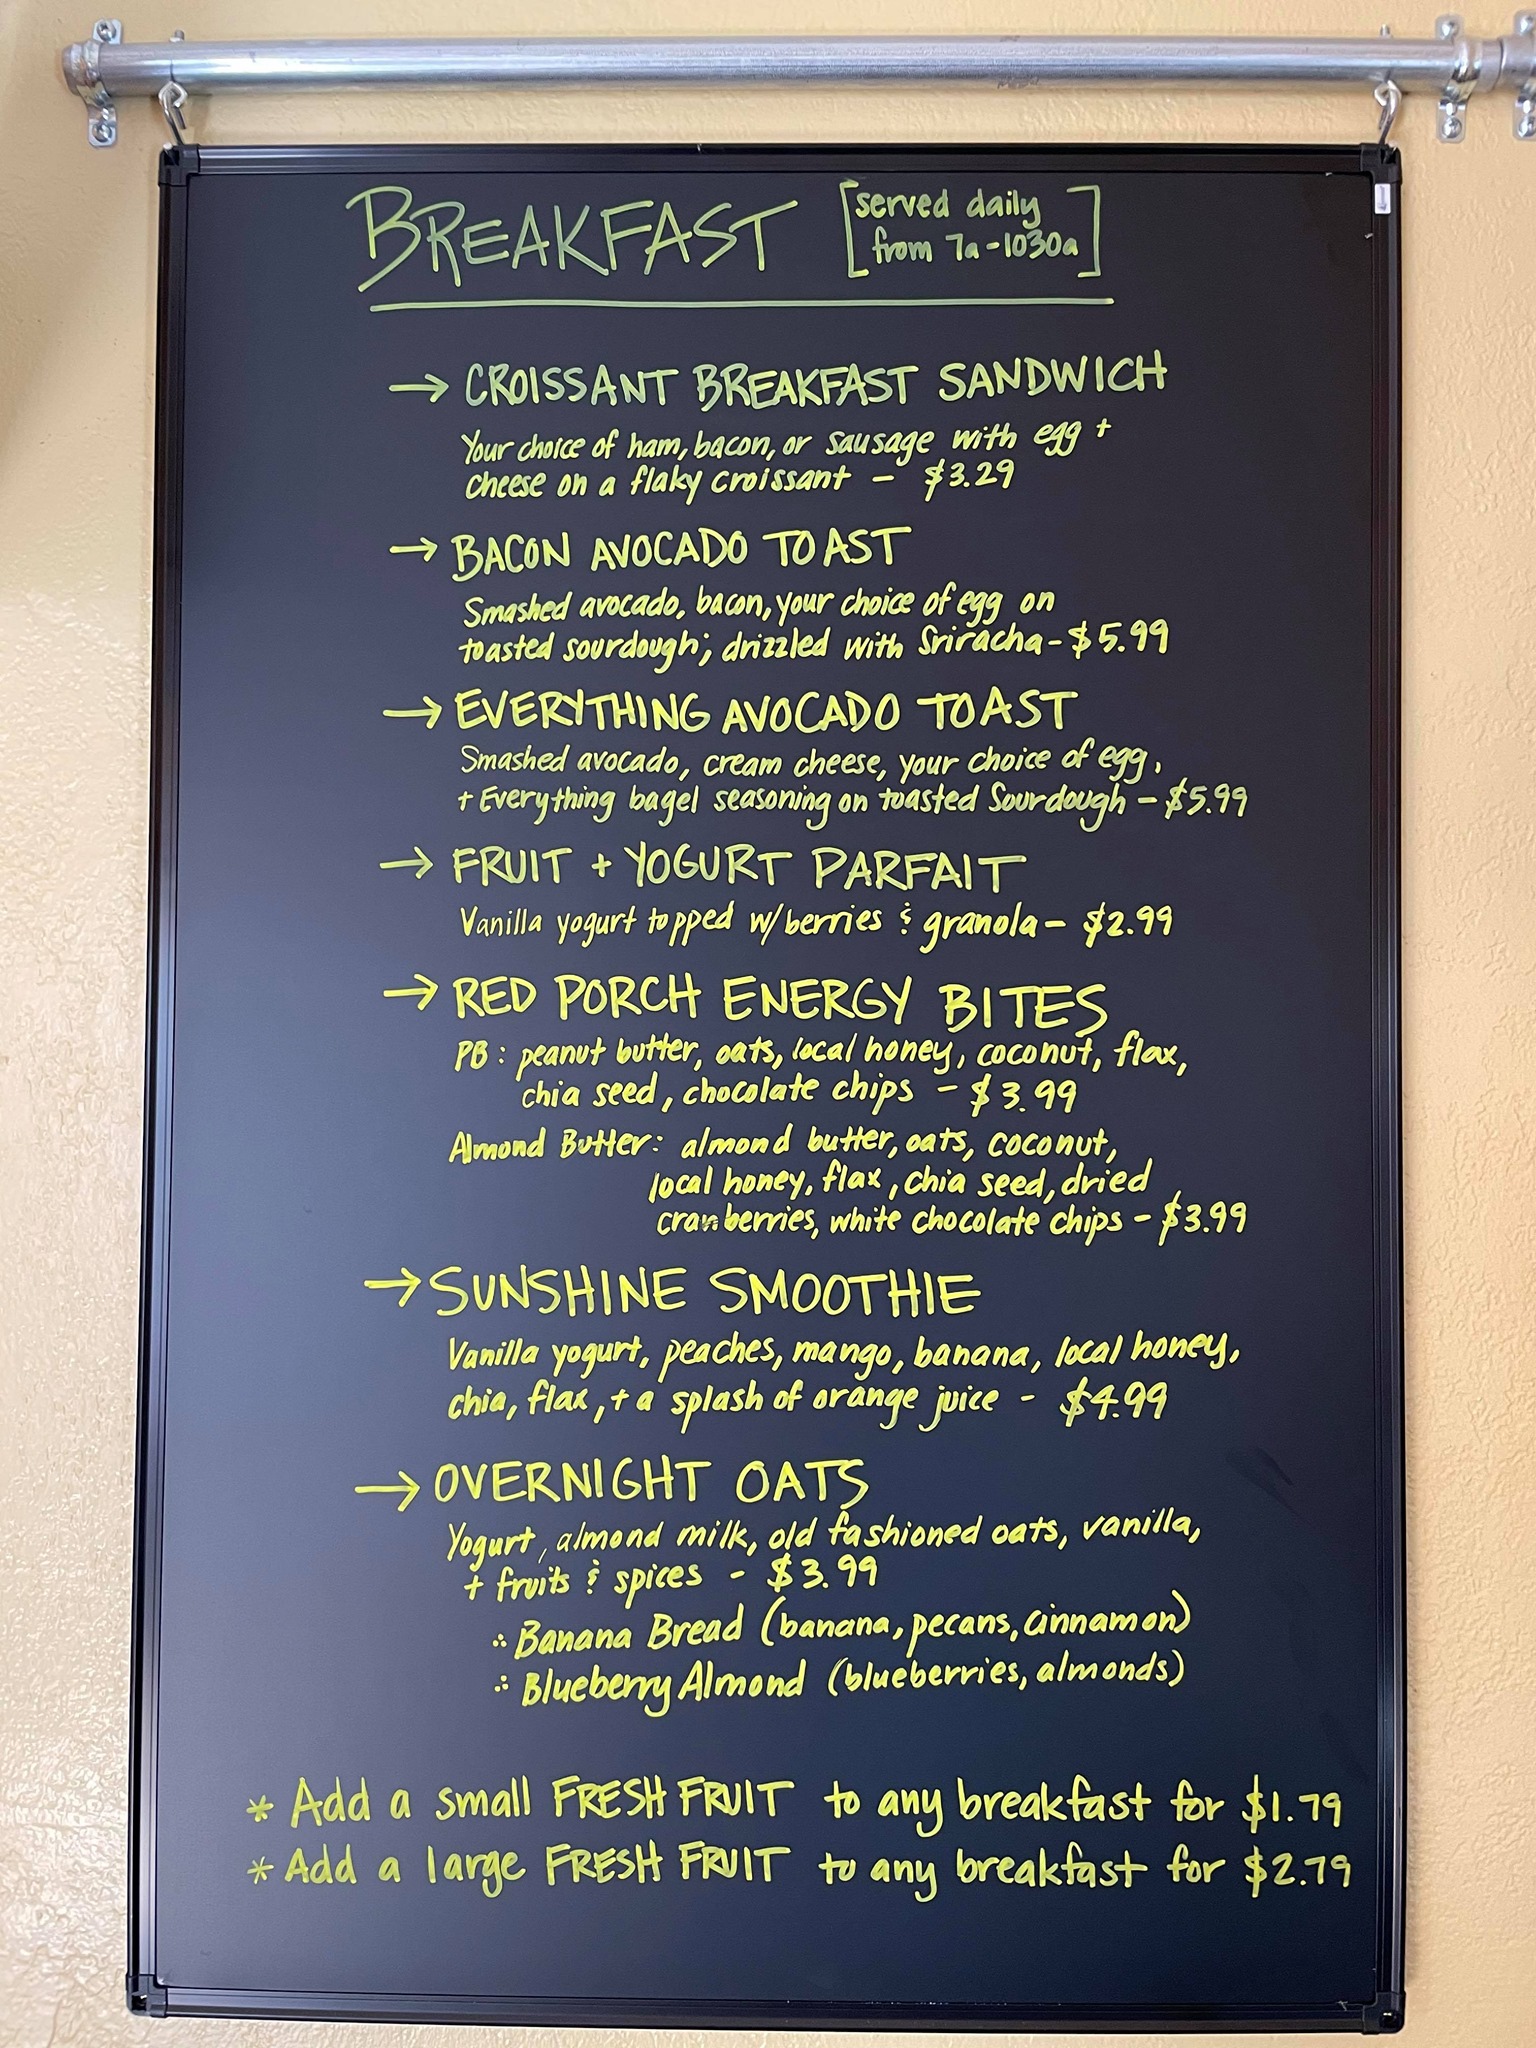 BREAKFAST [served daily
from 7a-1030a]
→ CROISSANT BREAKFAST SANDWICH
Your choice of ham, bacon, or sausage with egg +
cheese on a flaky croissant - $3.29
→ BACON AVOCADO TOAST
Smashed avocado, bacon, your choice of egg on
toasted sourdough; drizzled with Sriracha - $5.99
→ EVERYTHING AVOCADO TOAST
Smashed avocado, cream cheese, your choice of egg,
+ Everything bagel seasoning on toasted Sourdough - $5.99
→ FRUIT + YOGURT PARFAIT
Vanilla yogurt topped w/berries & granola - $2.99
→ RED PORCH ENERGY BITES
PB: peanut butter, oats, local honey, coconut, flax,
chia seed, chocolate chips - $3.99
Almond Butter: almond butter, oats, coconut,
local honey, flax, chia seed, dried
cranberries, white chocolate chips - $3.99
→ SUNSHINE SMOOTHIE
Vanilla yogurt, peaches, mango, banana, local honey,
chia, flax, + a splash of orange juice - $4.99
→ OVERNIGHT OATS
Yogurt, almond milk, old fashioned oats, vanilla,
+ fruits & spices - $3.99
∴ Banana Bread (banana, pecans, cinnamon)
∴ Blueberry Almond (blueberries, almonds)
* Add a small FRESH FRUIT to any breakfast for $1.79
* Add a large FRESH FRUIT to any breakfast for $2.79